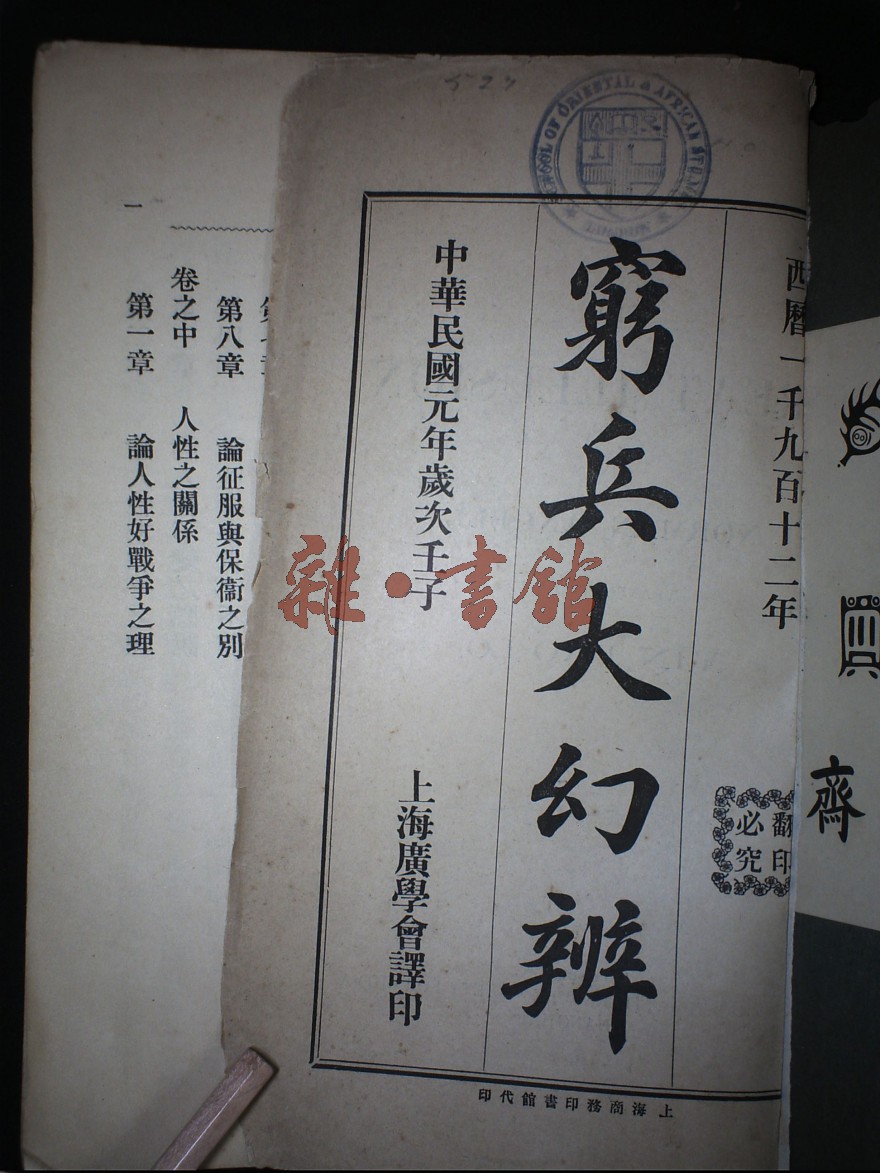 527
SCHOOL OF ORIENTAL & AFRICAN STUDIES
西曆一千九百十二年
翻印
必究
窮兵大幻辨
中華民國元年歲次壬子
上海廣學會譯印
上海商務印書館代印
第八章 論征服與保衞之別
卷之中 人性之關係
第一章 論人性好戰爭之理
一
齋
雜·書館